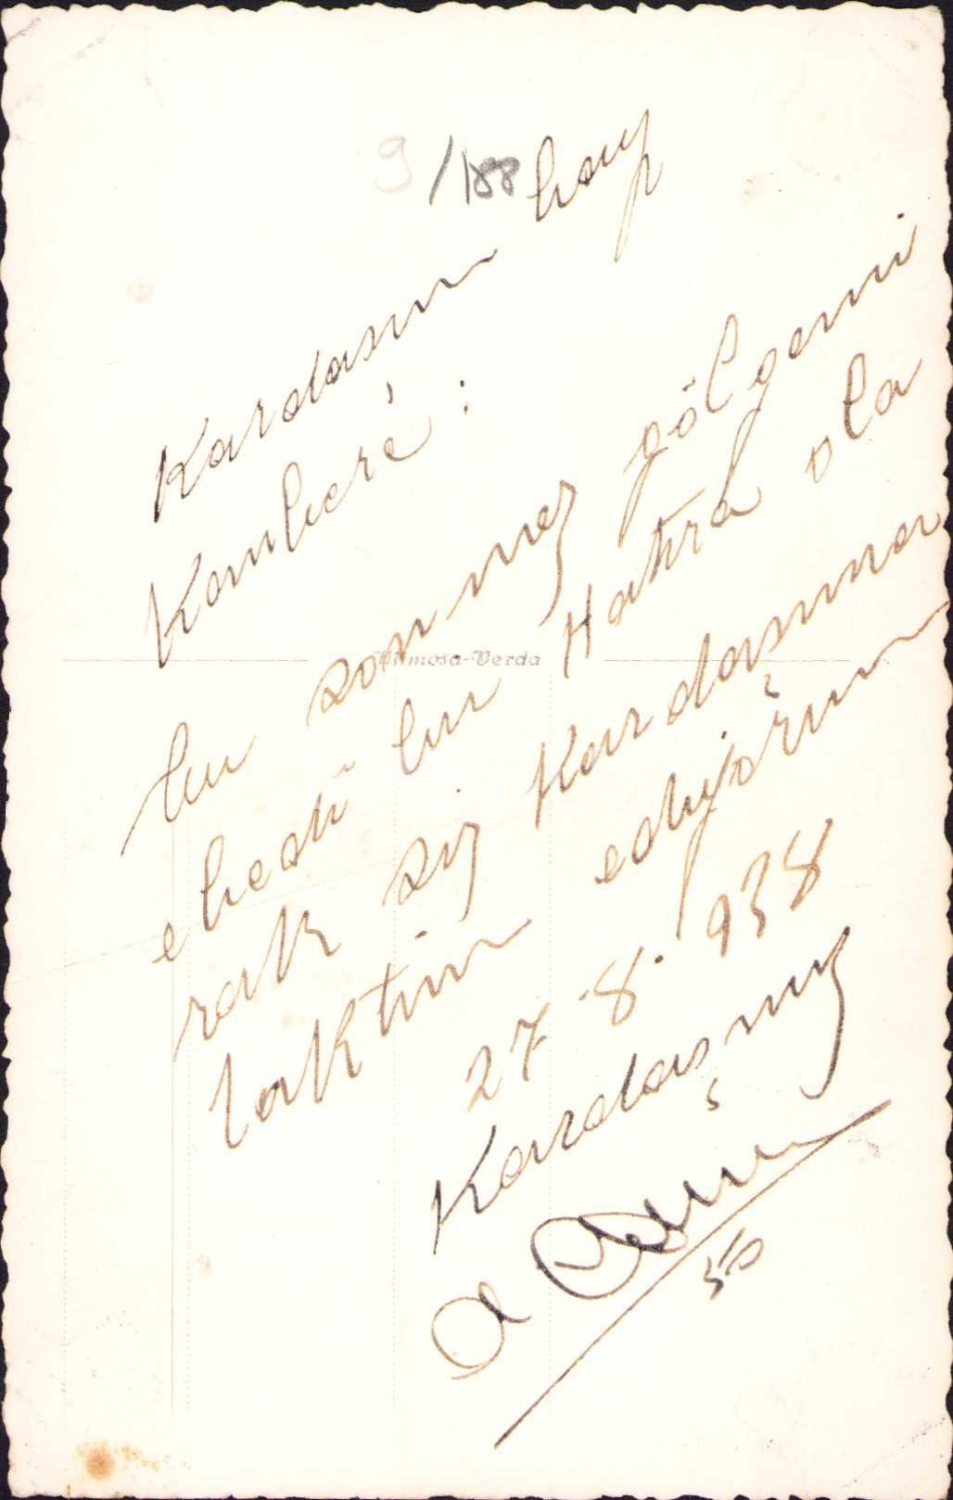 9/188
Kardaşım bay
Kamber'e :
bu sönmez gölgemi
ebedi bir Hatıra ola
rak siz Kardaşıma
taktim ediyorum
27.8.938
Kardaşınız
Mimosa-Verda